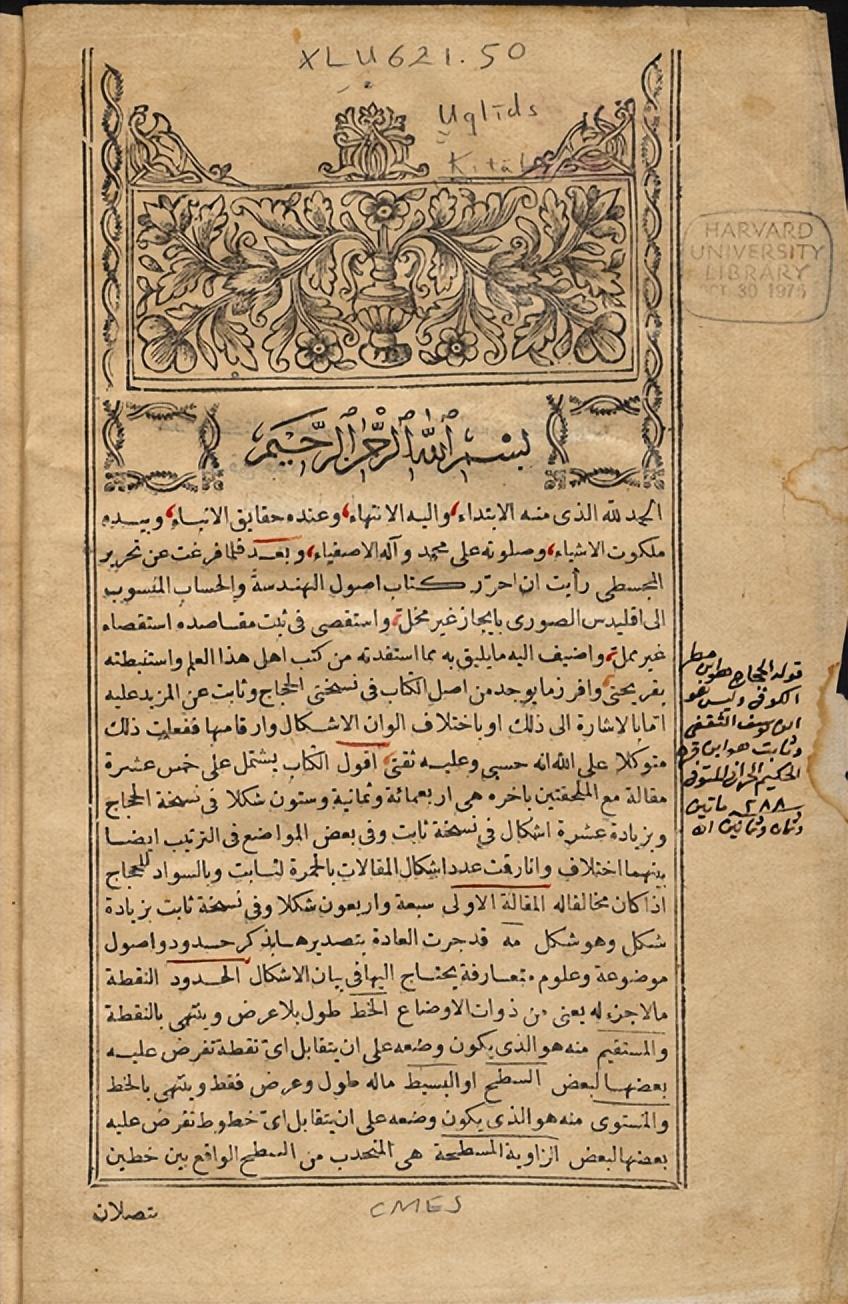 XLU621.50
Uqlīds
Kitāb
HARVARD
UNIVERSITY
LIBRARY
OCT 30 1975
بسم الله الرحمن الرحيم
الحمد لله الذى منه الابتداء، واليه الانتهاء، وعنده حقايق الانباء، وبيده
ملكوت الاشياء، وصلوته على محمد وآله الاصفياء، وبعد فلما فرغت عن تحرير
المجسطى رأيت ان احرر كتاب اصول الهندسة والحساب المنسوب
الى اقليدس الصورى بايجاز غير مخل، واستقصى فى ثبت مقاصده استقصاء
غير ممل، واضيف اليه مايليق به مما استفدته من كتب اهل هذا العلم واستنبطته
بقريحتى وافرز مايوجد من اصل الكتاب فى نسختى الحجاج وثابت عن المزيد عليه
اما بالاشارة الى ذلك او باختلاف الوان الاشكال وارقامها ففعلت ذلك
متوكلا على الله انه حسبى وعليه ثقتى اقول الكتاب يشتمل على خمس عشرة
مقالة مع الملحقتين باخره هى اربعمائة وثمانية وستون شكلا فى نسخة الحجاج
وبزيادة عشرة اشكال فى نسخة ثابت وفى بعض المواضع فى الترتيب ايضا
بينهما اختلاف وانا رقمت عدد اشكال المقالات بالحمرة لثابت وبالسواد للحجاج
اذا كان مخالفاله المقالة الاولى سبعة واربعون شكلا وفى نسخة ثابت بزيادة
شكل وهو شكل مه قد جرت العادة بتصديرها بذكر حدود واصول
موضوعة وعلوم متعارفة يحتاج اليها فى بيان الاشكال الحدود النقطة
مالاجزء له يعنى من ذوات الاوضاع الخط طول بلا عرض وينتهى بالنقطة
والمستقيم منه هو الذى يكون وضعه على ان يتقابل اى نقطة تفرض عليه
بعضها لبعض السطح او البسيط ماله طول وعرض فقط وينتهى بالخط
والمستوى منه هو الذى يكون وضعه على ان يتقابل اى خطوط تفرض عليه
بعضها لبعض الزاوية المسطحة هى المنحدب من السطح الواقع بين خطين
يتصلان
CMES
قوله الحجاج هو ابن مطر
الكوفى وليس هو
ابن يوسف الثقفى
وثابت هو ابن قره
الحكيم الحرانى المتوفى
٢٨٨ ماتين
وثمان وثمانين